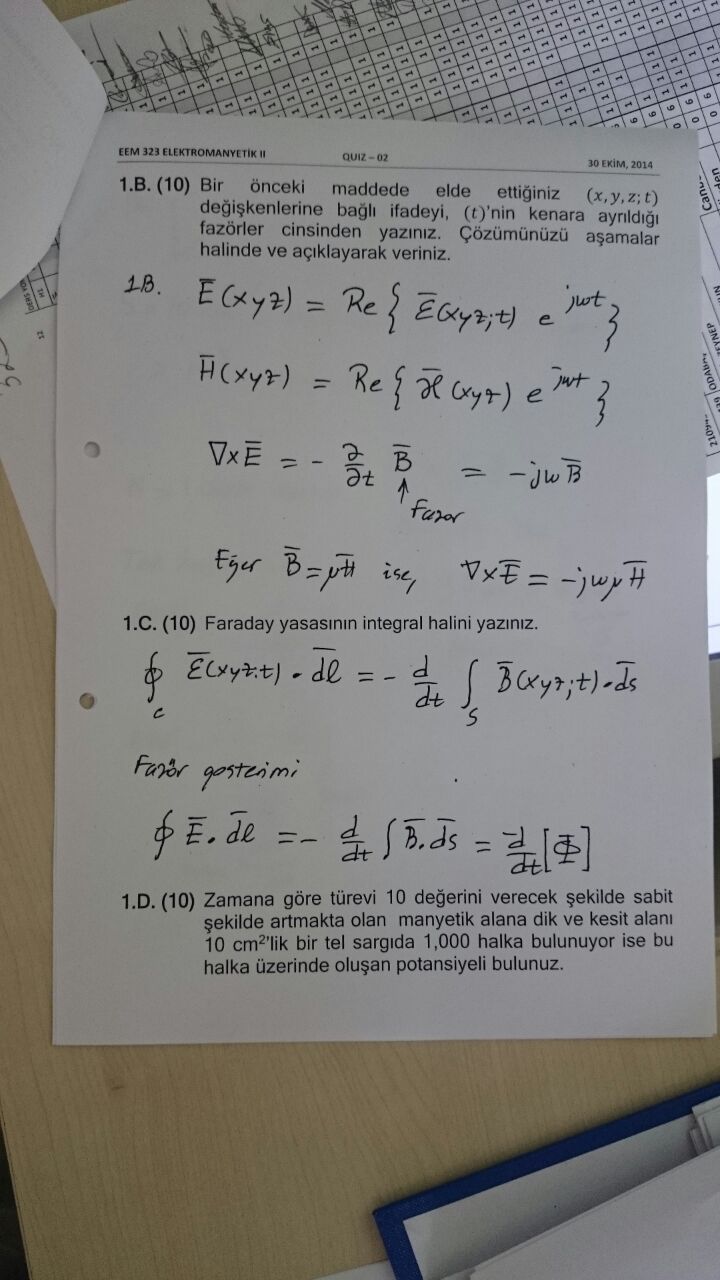 EEM 323 ELEKTROMANYETİK II QUIZ – 02 30 EKİM, 2014
1.B. (10) Bir önceki maddede elde ettiğiniz (x, y, z; t)
değişkenlerine bağlı ifadeyi, (t)'nin kenara ayrıldığı
fazörler cinsinden yazınız. Çözümünüzü aşamalar
halinde ve açıklayarak veriniz.
1B. E̅(xyz) = Re { E̅(xyz;t) e^jwt }
H̅(xyz) = Re { H̅(xyz) e^jwt }
∇xE̅ = - ∂/∂t B̅ = -jwB̅
↑
Fazor
Eğer B̅=μH̅ ise, ∇xE̅ = -jwμH̅
1.C. (10) Faraday yasasının integral halini yazınız.
∮c E̅(xyz;t) . d̅l̅ = - d/dt ∫S B̅(xyz;t) . d̅s̅
Fazör gosterimi
∮ E̅. d̅l̅ = - d/dt ∫ B̅. d̅s̅ = -d/dt [Φ]
1.D. (10) Zamana göre türevi 10 değerini verecek şekilde sabit
şekilde artmakta olan manyetik alana dik ve kesit alanı
10 cm²'lik bir tel sargıda 1,000 halka bulunuyor ise bu
halka üzerinde oluşan potansiyeli bulunuz.